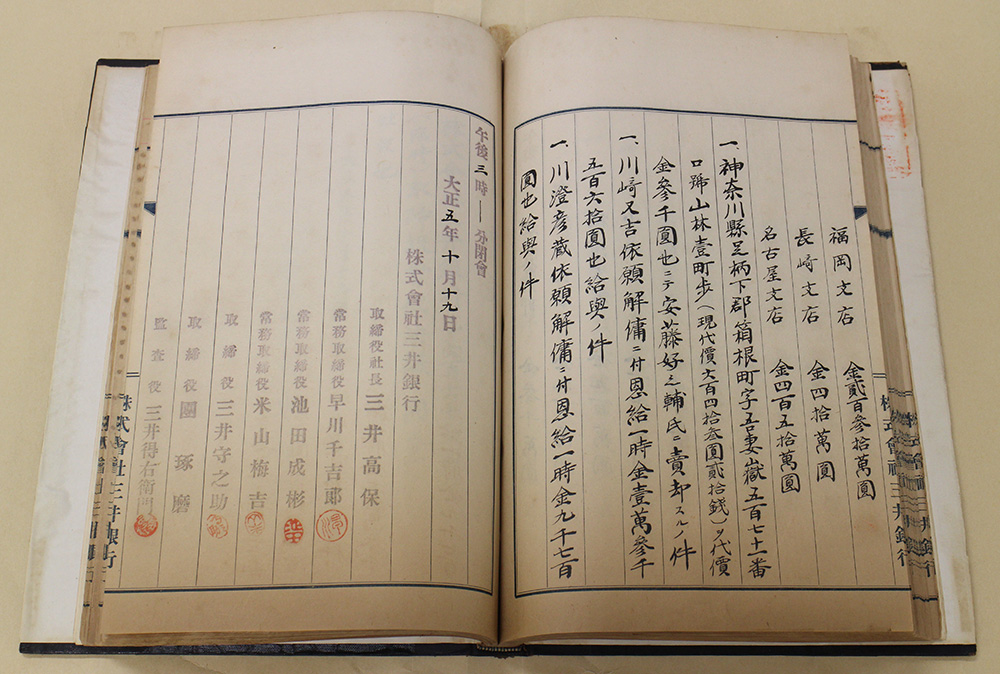 福岡支店 金貳百参拾萬圓
長崎支店 金四拾萬圓
名古屋支店 金四百五拾萬圓
一、神奈川縣足柄下郡箱根町字吾妻嶽五百七十一番
ロ號山林壹町歩(現代價六百四拾参圓貳拾銭)ヲ代價
金参千圓也ニテ安藤好之輔氏ニ賣却スルノ件
一、川崎又吉依願解傭ニ付恩給一時金壹萬参千
五百六拾圓也給與ノ件
一、川澄彦蔵依願解傭ニ付恩給一時金九千七百
圓也給與ノ件
午後三時一分閉會
大正五年十月十九日
株式會社三井銀行
取締役社長 三井高保
常務取締役 早川千吉郎
常務取締役 池田成彬
常務取締役 米山梅吉
取締役 三井守之助
取締役 團琢磨
監査役 三井得右衛門
株式會社三井銀行